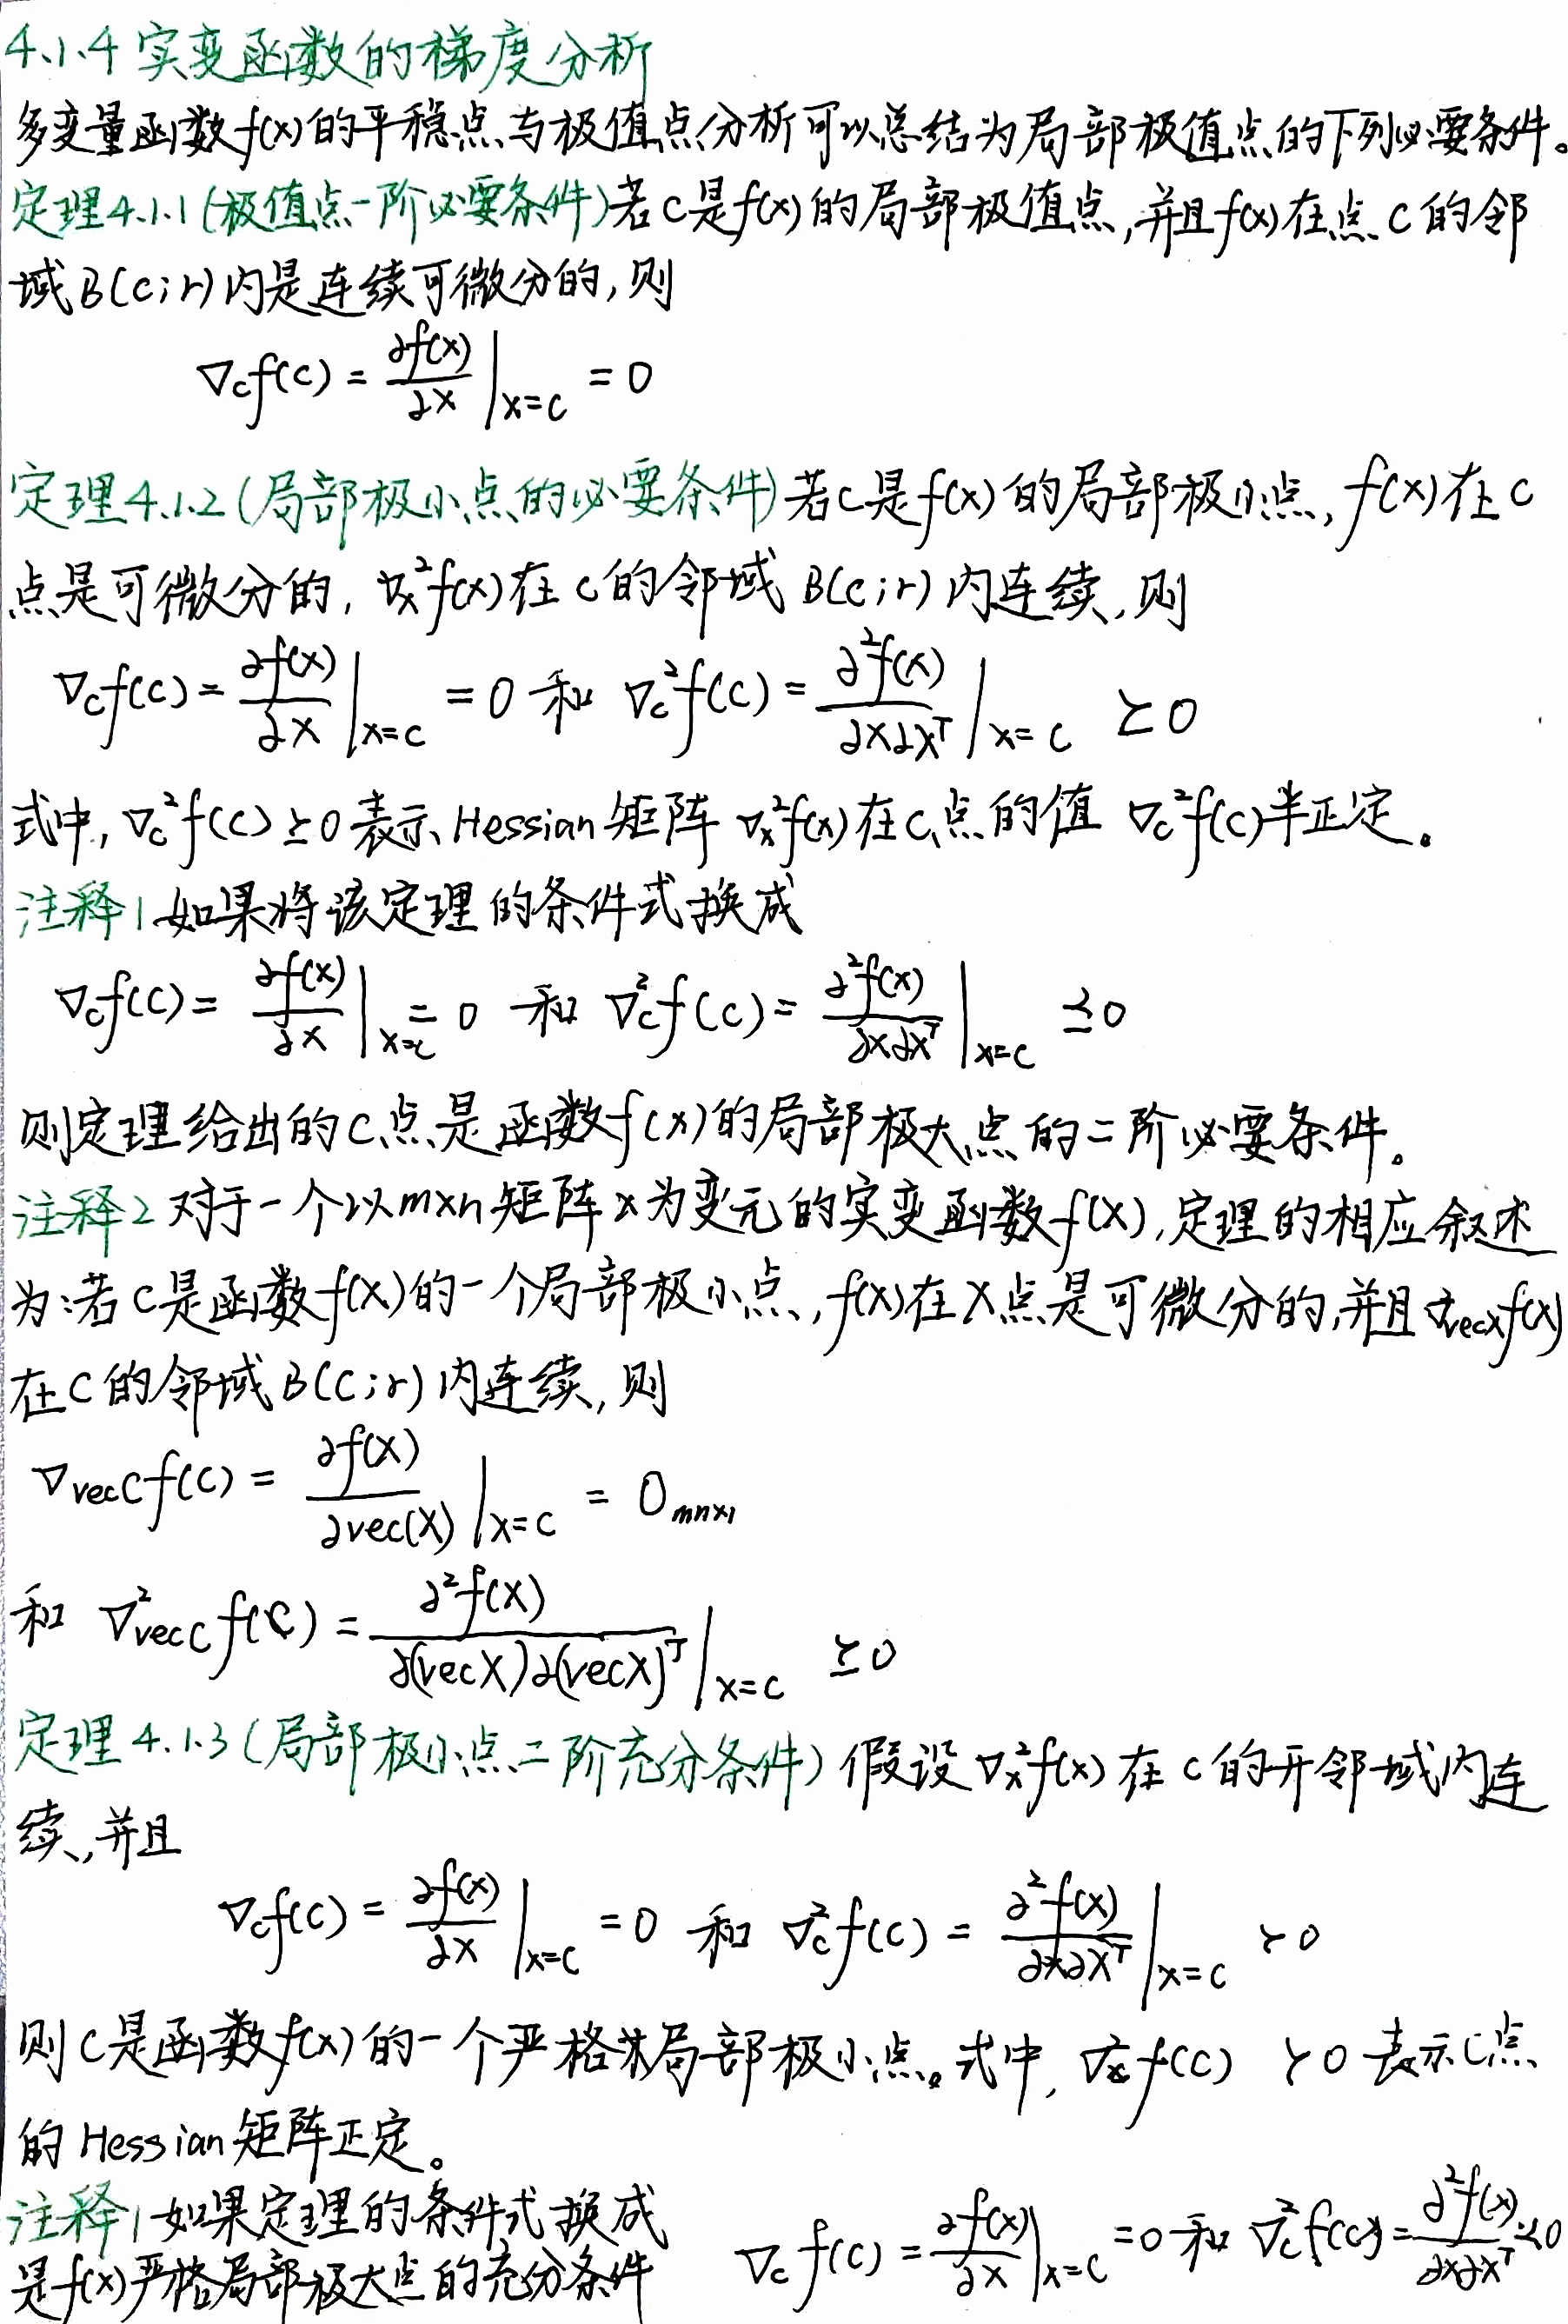 4.1.4 实变函数的梯度分析
多变量函数f(x)的平稳点与极值点分析可以总结为局部极值点的下列必要条件。
定理4.1.1(极值点一阶必要条件)若c是f(x)的局部极值点,并且f(x)在点c的邻
域B(c;r)内是连续可微分的,则
∇cf(c) = ∂f(x)/∂x |x=c = 0
定理4.1.2(局部极小点的必要条件)若c是f(x)的局部极小点,f(x)在c
点是可微分的,∇x²f(x)在c的邻域B(c;r)内连续,则
∇cf(c) = ∂f(x)/∂x |x=c = 0 和 ∇c²f(c) = ∂²f(x)/∂x∂xᵀ |x=c ⪰0
式中,∇c²f(c)⪰0表示Hessian矩阵∇x²f(x)在c点的值∇c²f(c)半正定。
注释1 如果将该定理的条件式换成
∇cf(c) = ∂f(x)/∂x |x=c = 0 和 ∇c²f(c) = ∂²f(x)/∂x∂xᵀ |x=c ⪯0
则定理给出的c点是函数f(x)的局部极大点的二阶必要条件。
注释2 对于一个以m×n矩阵X为变元的实变函数f(X),定理的相应叙述
为:若C是函数f(X)的一个局部极小点,f(X)在X点是可微分的,并且∇²vecXf(X)
在C的邻域B(C;r)内连续,则
∇vecCf(C) = ∂f(X)/∂vec(X) |X=C = 0mn×1
和 ∇²vecCf(C) = ∂²f(X)/∂(vecX)∂(vecX)ᵀ |X=C ⪰0
定理4.1.3(局部极小点二阶充分条件)假设∇x²f(x)在c的开邻域内连
续,并且
∇cf(c) = ∂f(x)/∂x |x=c = 0 和 ∇c²f(c) = ∂²f(x)/∂x∂xᵀ |x=c ≻0
则c是函数f(x)的一个严格局部极小点。式中,∇c²f(c) ≻0表示c点
的Hessian矩阵正定。
注释1 如果定理的条件式换成 ∇cf(c) = ∂f(x)/∂x |x=c =0 和 ∇c²f(c) = ∂²f(x)/∂x∂xᵀ ≺0
是f(x)严格局部极大点的充分条件